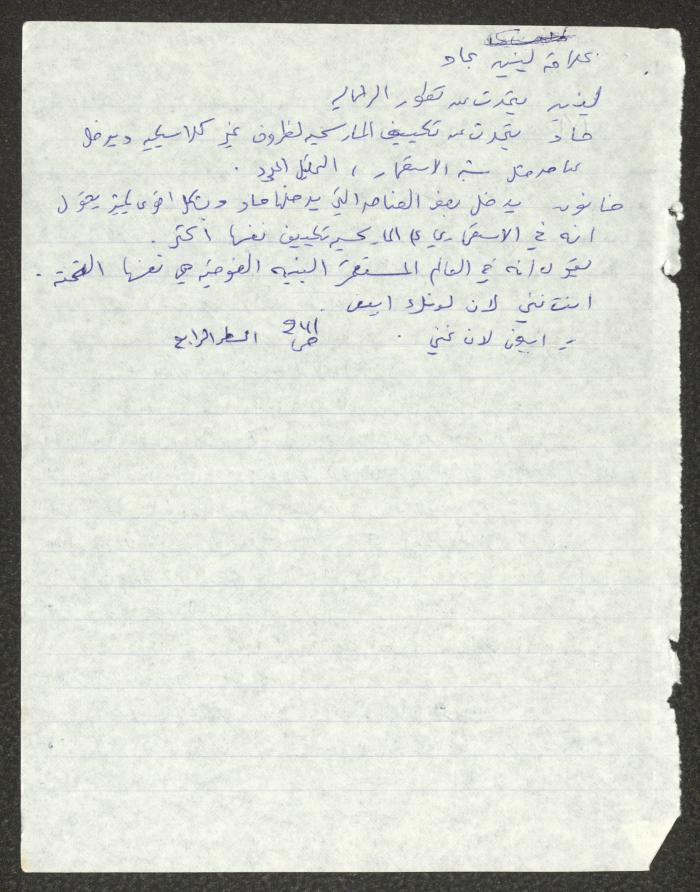 علاقة لينين بماو
لينين يتحدث عن تطور الرأسمالية
ماو يتحدث عن تكييف الماركسية لظروف غير كلاسيكية ويدخل
عناصر مثل شبه الاستعمار ،
فانون يدخل بعض العناصر التي يدخلها ماو وبشكل اخر يقول
انه في الاستعمار على الماركسية تكييف نفسها أكثر .
يقول انه في العالم المستعمر البنية الفوقية هي نفسها التحتية .
انت غني لان لونك ابيض .
= ابيض لان غني . ص السطر الرابع